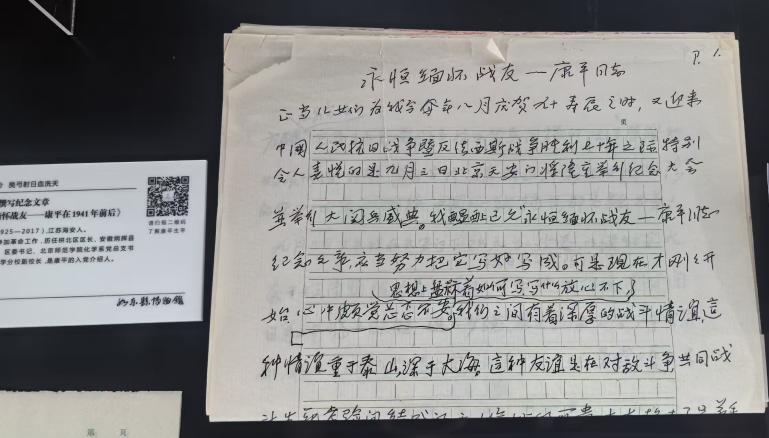 奕弓射日血洗天
撰写纪念文章
怀战友——康平在1941年前后》
925—2017），江苏海安人。
参加革命工作，历任栟北区区长、安徽炳辉县
区委书记、北京师范学院化学系党总支书
学分校副校长，是康平的入党介绍人。
请扫描二维码
了解康平生平
如东县博物馆
第 页
P. 1.
永恒缅怀战友——康平同志
正当儿女们为我今年八月庆贺九十寿辰之时，又迎来
页
中国人民抗日战争暨反法西斯战争胜利七十年之际特别
令人喜悦的是九月三日北京天安门将隆重举行纪念大会
并举行大阅兵盛典。我 永恒缅怀战友——康平同志
纪念文章，应当努力把它写好写成。可是现在才刚刚开
思想上 着如何写，写什么放心不下
始，心中颇觉忐忑不安。我们之间有着深厚的战斗情谊，这
种情谊重于泰山，深于大海，这种友谊是在对敌斗争共同战